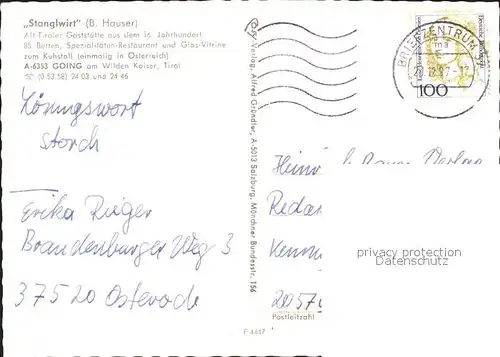 „Stanglwirt“ (B. Hauser)
Alt-Tiroler Gaststätte aus dem 16. Jahrhundert.
85 Betten, Spezialitäten-Restaurant und Glas-Vitrine
zum Kuhstall (einmalig in Österreich)
A-6353 GOING am Wilden Kaiser, Tirol
(0 53 58) 24 03 und 24 46
Lösungswort
Storch
Erika Rieger
Brandenburger Weg 3
37520 Osterode
Verlag Alfred Gründler, A-5013 Salzburg, Münchner Bundesstr. 156
F 4417
BRIEFZENTRUM
100
Heinr Bauer Verlag
Redak
2057
Postleitzahl
privacy protection
Datenschutz